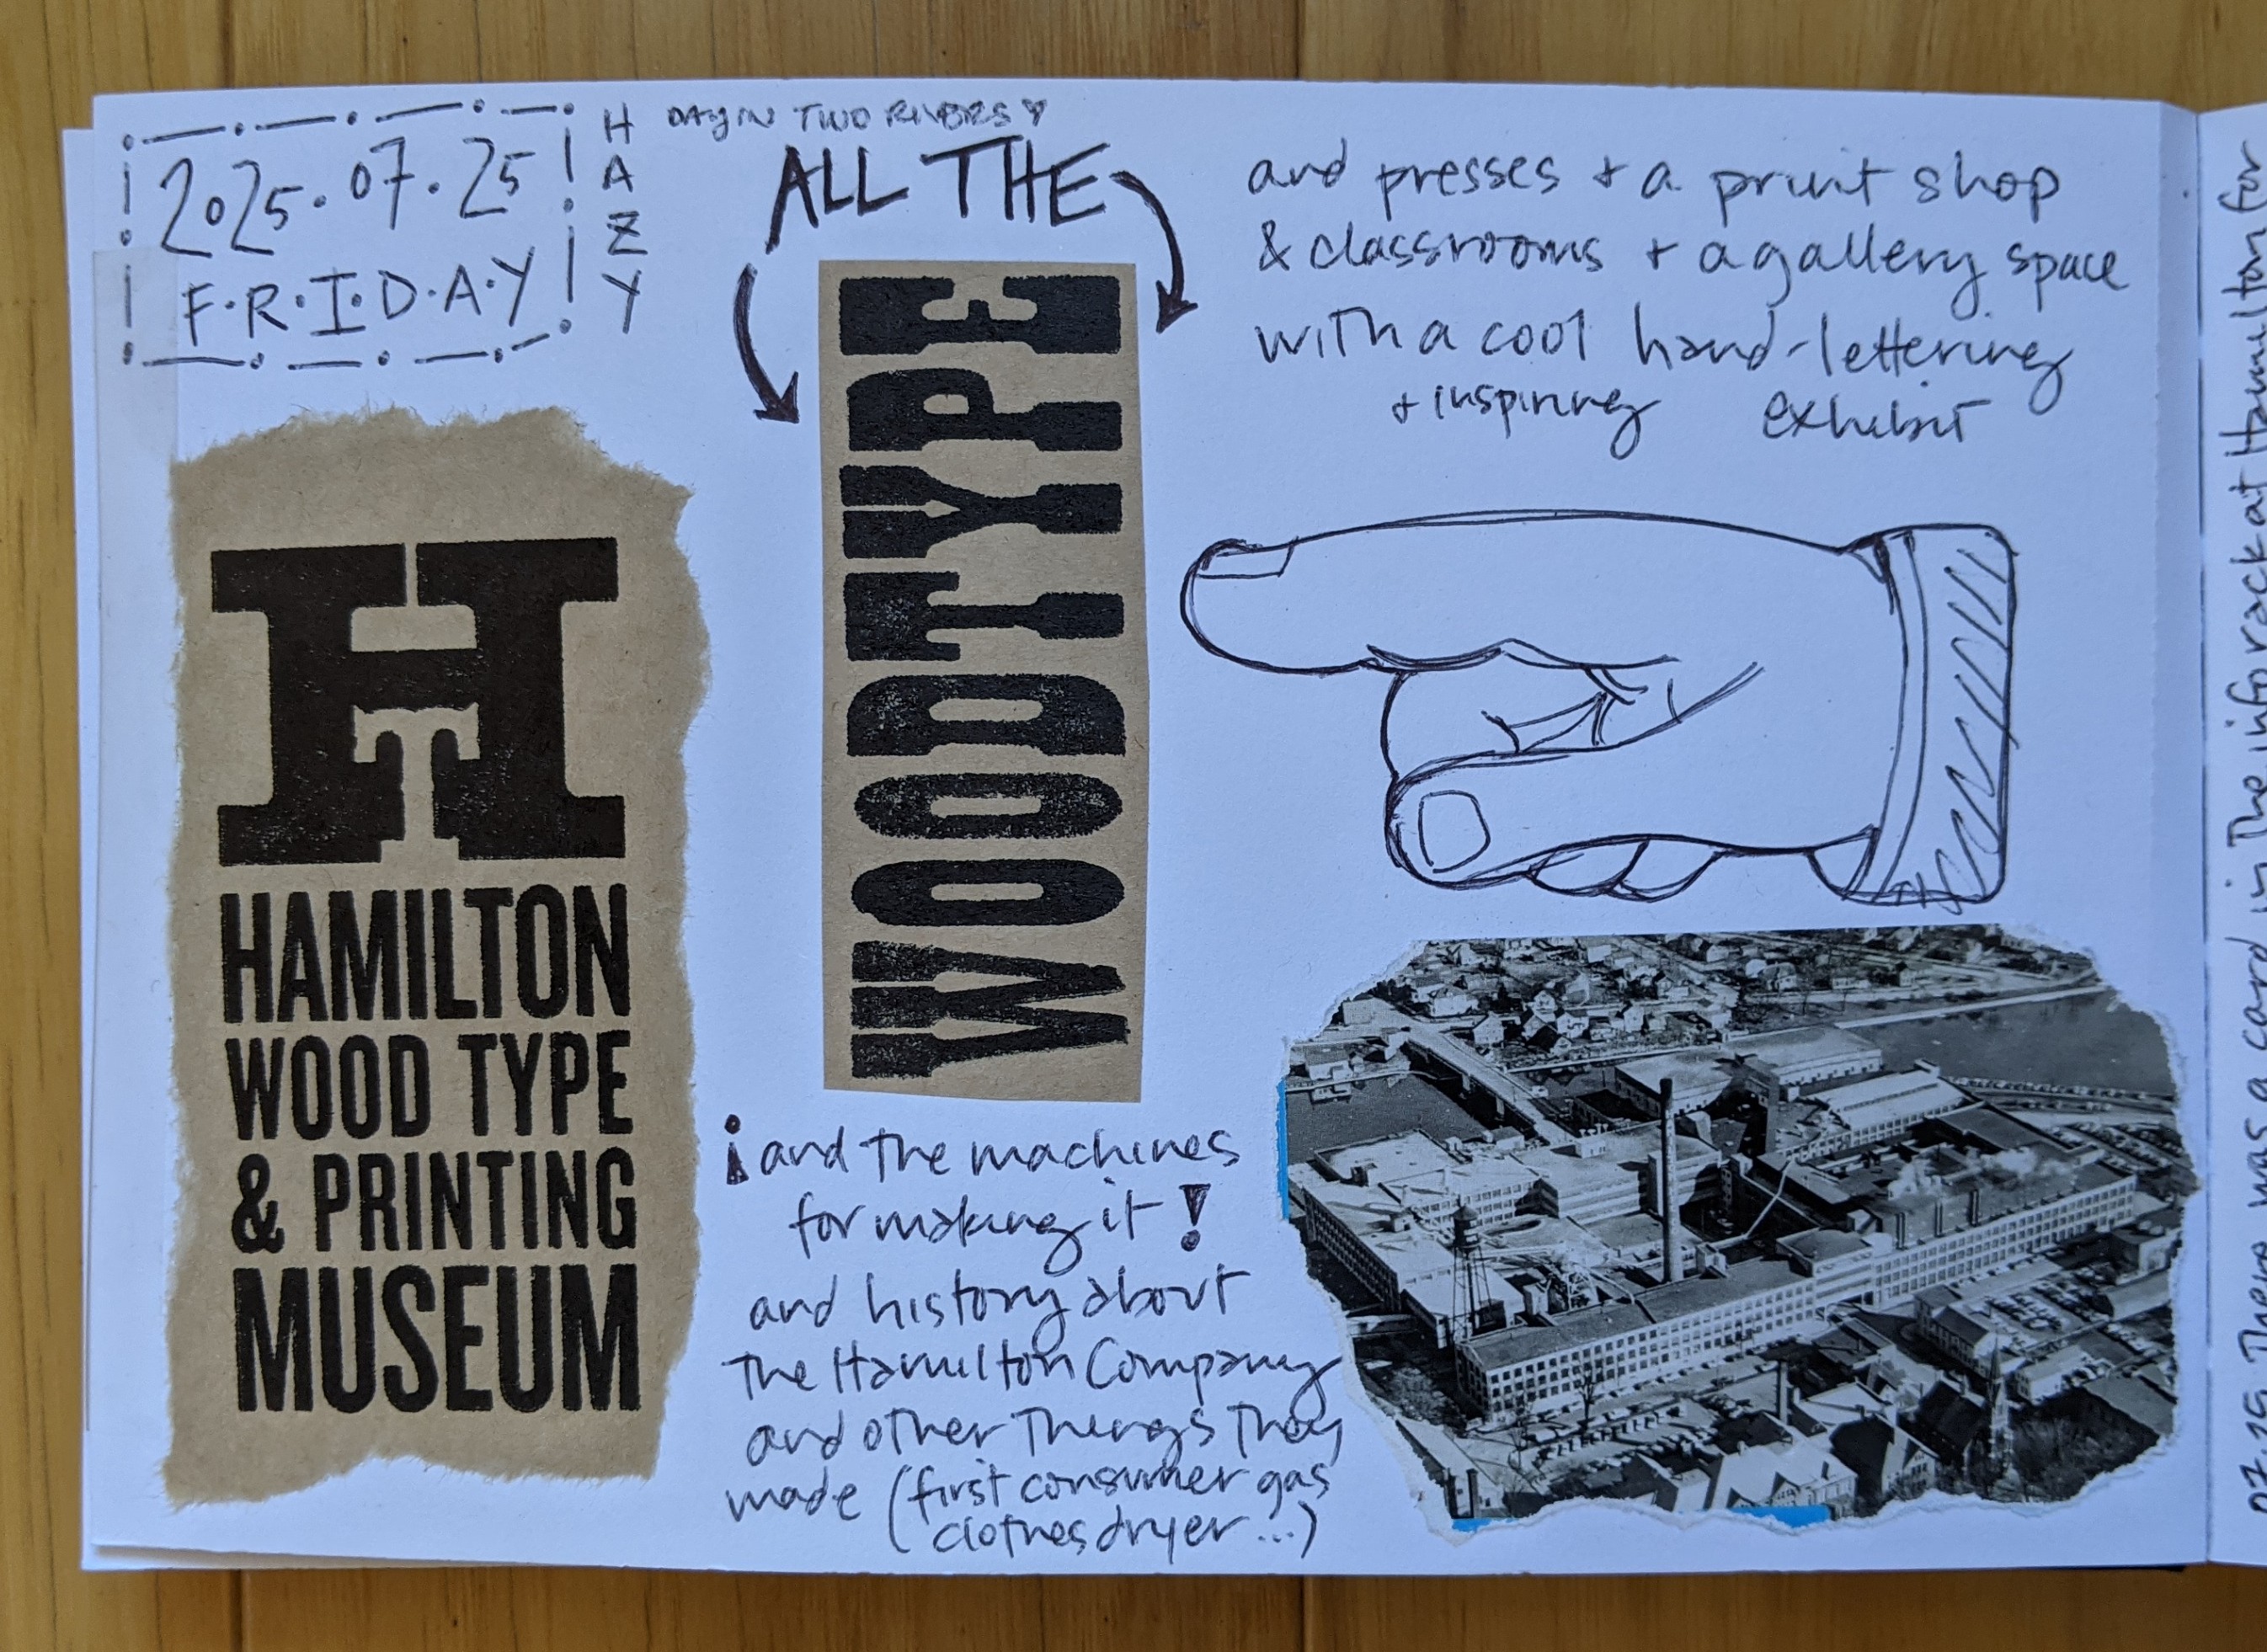 2025.07.25
F·R·I·D·A·Y
HAZY
DAY IN TWO RIVERS
H
HAMILTON
WOOD TYPE
& PRINTING
MUSEUM
ALL THE
WOODTYPE
¡and the machines
for making it!
and history about
the Hamilton Company
and other things they
made (first consumer gas
clothes dryer...)
and presses + a print shop
& classrooms + a gallery space
with a cool hand-lettering
+ inspiring exhibit
07.25 There was a card in the info rack at Hamilton for